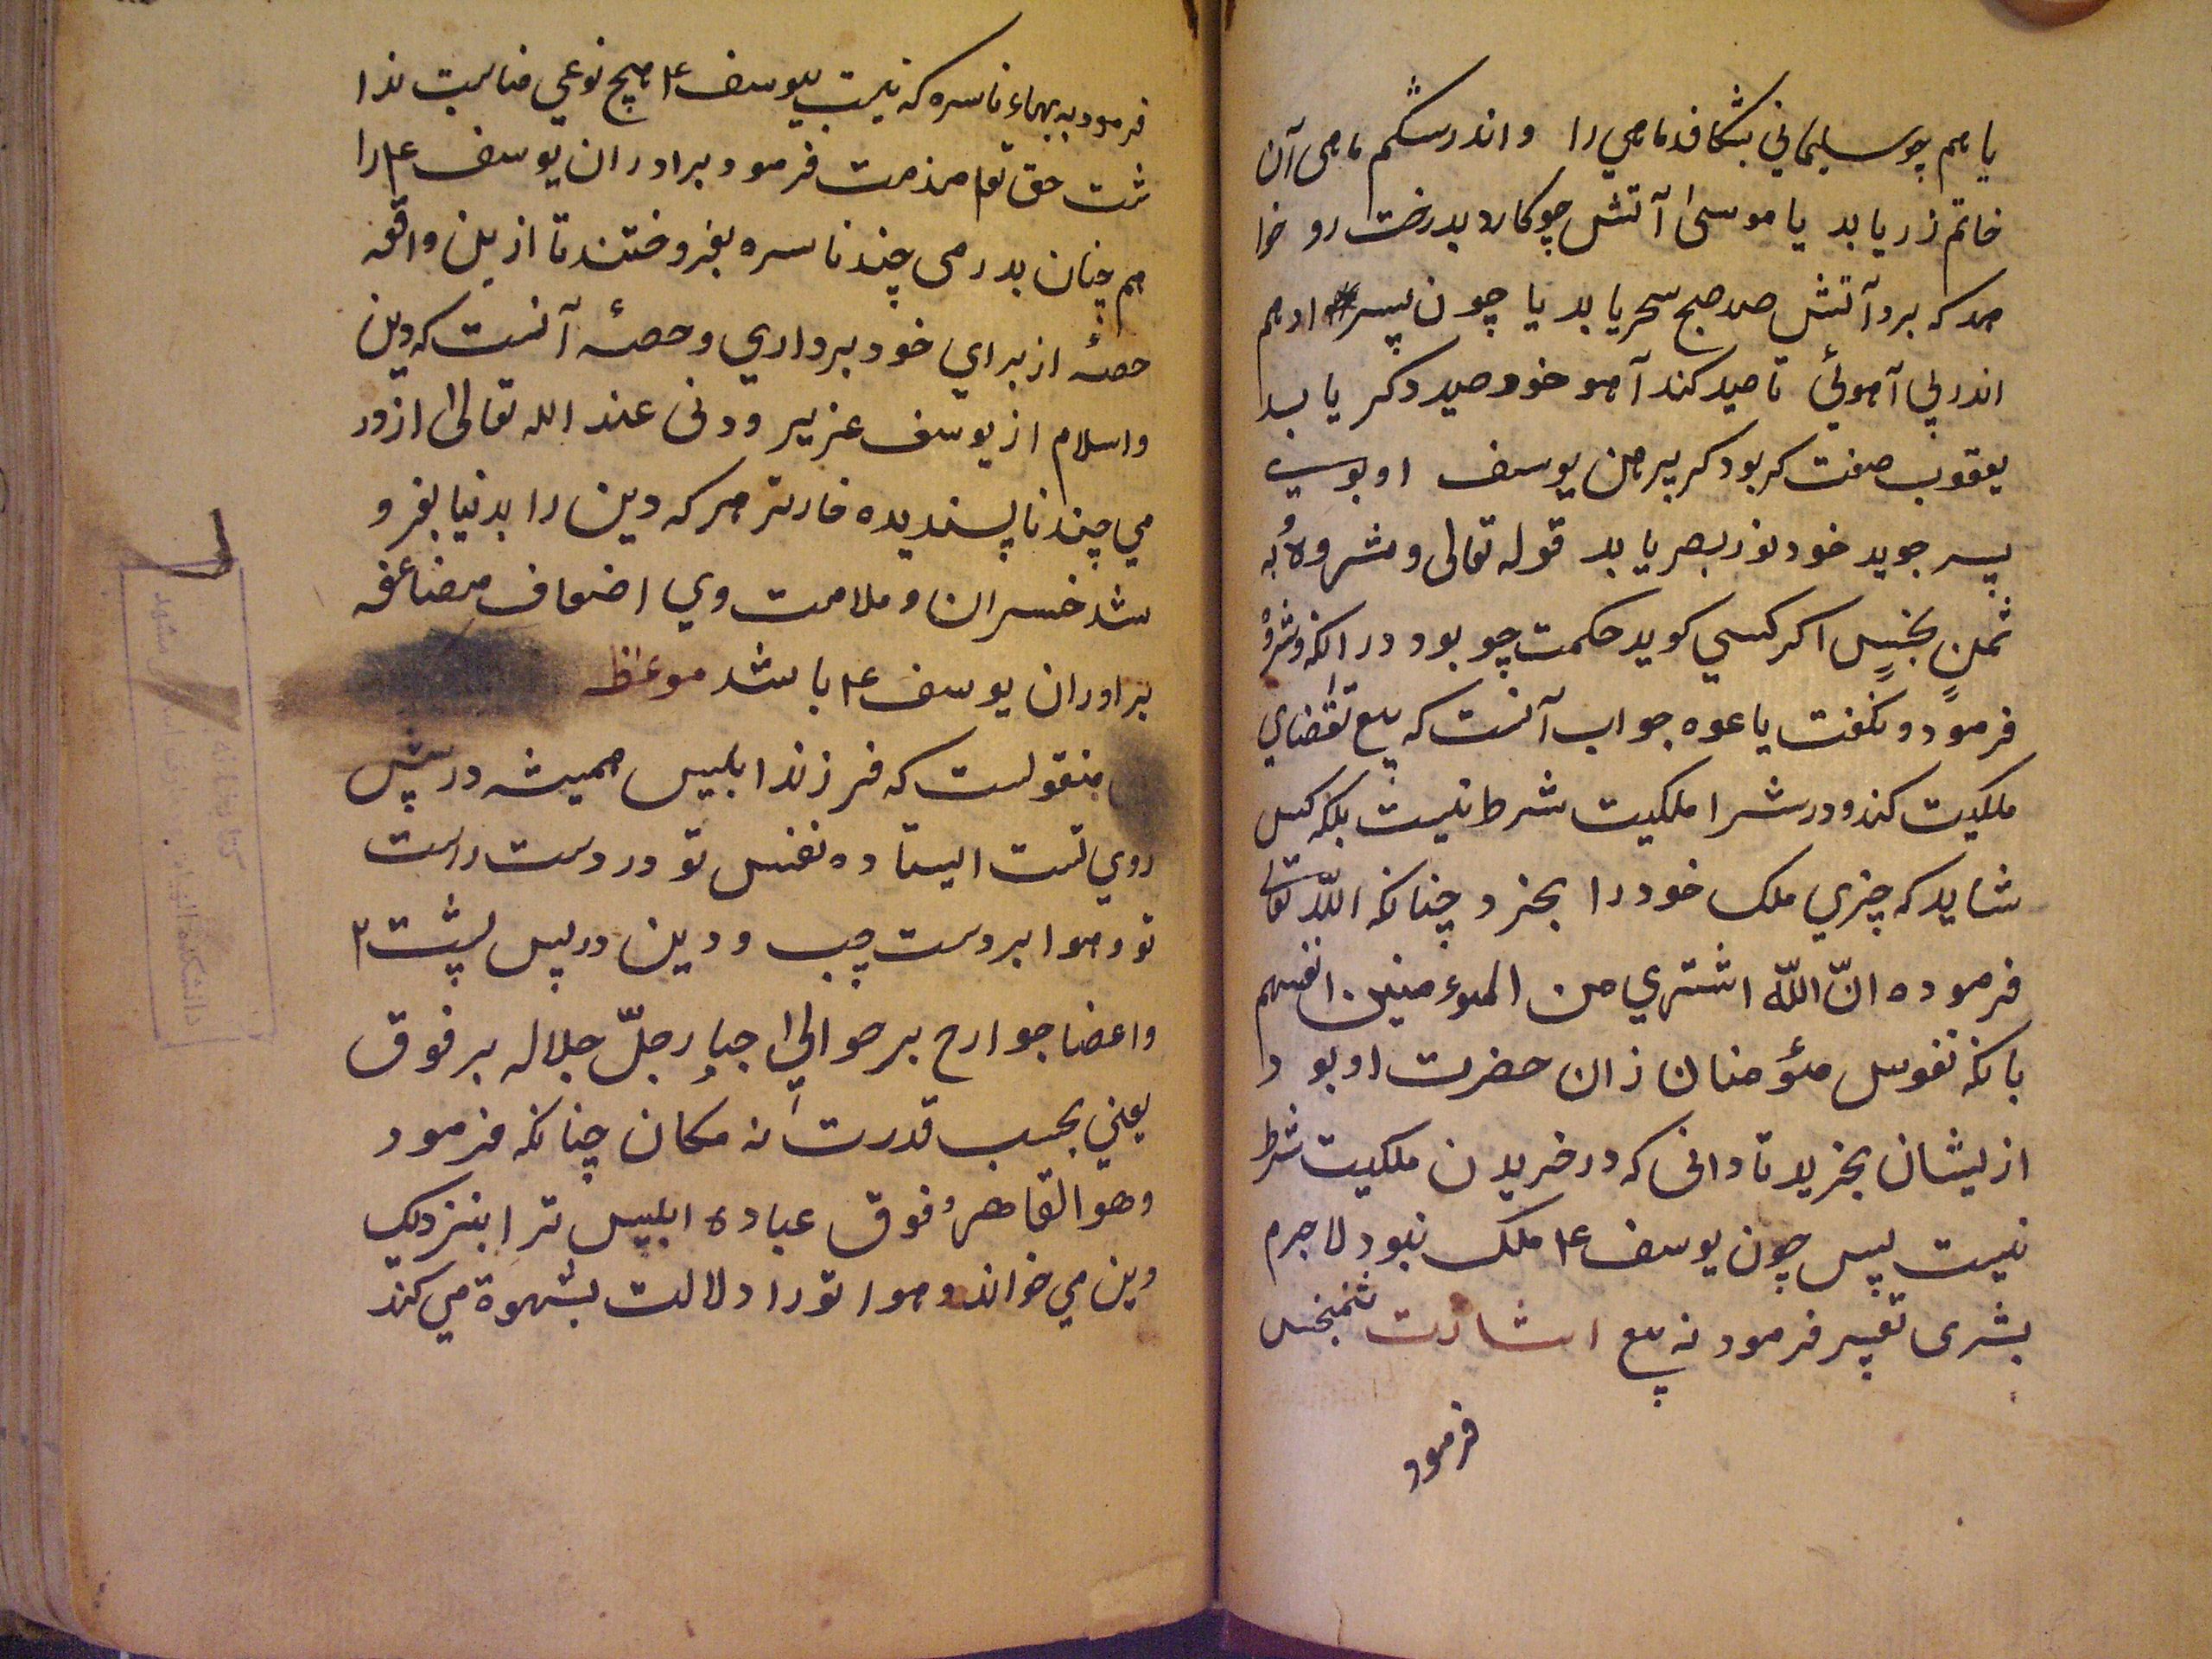 یا هم چو سلیمانی بشکافد ماهی را و اندر شکم ماهی آن
خاتم زر یابد یا موسی آتش جو کارد بدرخت رو خوا
هد که برد آتش صد صبح سحر یابد یا چون پسر ادهم
اندر پی آهوئی تا صید کند آهو خود صید دکر یابد
یعقوب صفت کربود کز پیرهن یوسف او بوی
پسر جوید خود نور بصر یابد قوله تعالی وشروه به
ثمنٍ بخسٍ اکر کسی کوید حکمت چو بود در انکه وشروه
فرمود و نکفت باعوه جواب آنست که بیع تقضای
ملکیت کند و در شرا ملکیت شرط نیست بلکه کس
شاید که چیزی ملک خود را بخرد چنانکه الله تعالی
فرموده انّ اللّه اشتری من الموءمنین انفسهم
بانکه نفوس مئومنان زان حضرت او بود
از یشان بخرید تا دانی که در خریدن ملکیت شرط
نیست پس چون یوسف ع ملک نبود لاجرم
بشری تعبیر فرمود نه بیع اشارت ثمنبخس
فرمود
فرمود به بهاء ناسره که نسبت بیوسف ع هیچ نوعی مناسبت ندا
شت حق تع مذمت فرمود برادران یوسف ع را
هم چنان بدرمی چند ناسره بفروختند تا ازین واقعه
حصهٔ از برای خود برداری و حصه آنست که دین
واسلام از یوسف عزیر ودنی عند الله تعالی از در
می چند ناپسندیده خارتر هر که دین را بدنیا بفرو
شد خسران و ملامت وی اضعاف مضاعفه
برادران یوسف ع باشد موعظه
منقولست که فرزند ابلیس همیشه در پیش
روی تست ایستاده نفس تو در دست راست
تو و هوا بر دست چپ و دین در پس پشت
واعضا جوارح بر حوالی جبار جلّ جلاله بر فوق
یعنی بحسب قدرت نه مکان چنانکه فرمود
وهو القاهر فوق عباده ابلیس ترا بنزدیک
دین می خواند و هوا تو را دلالت بشهوة می کند